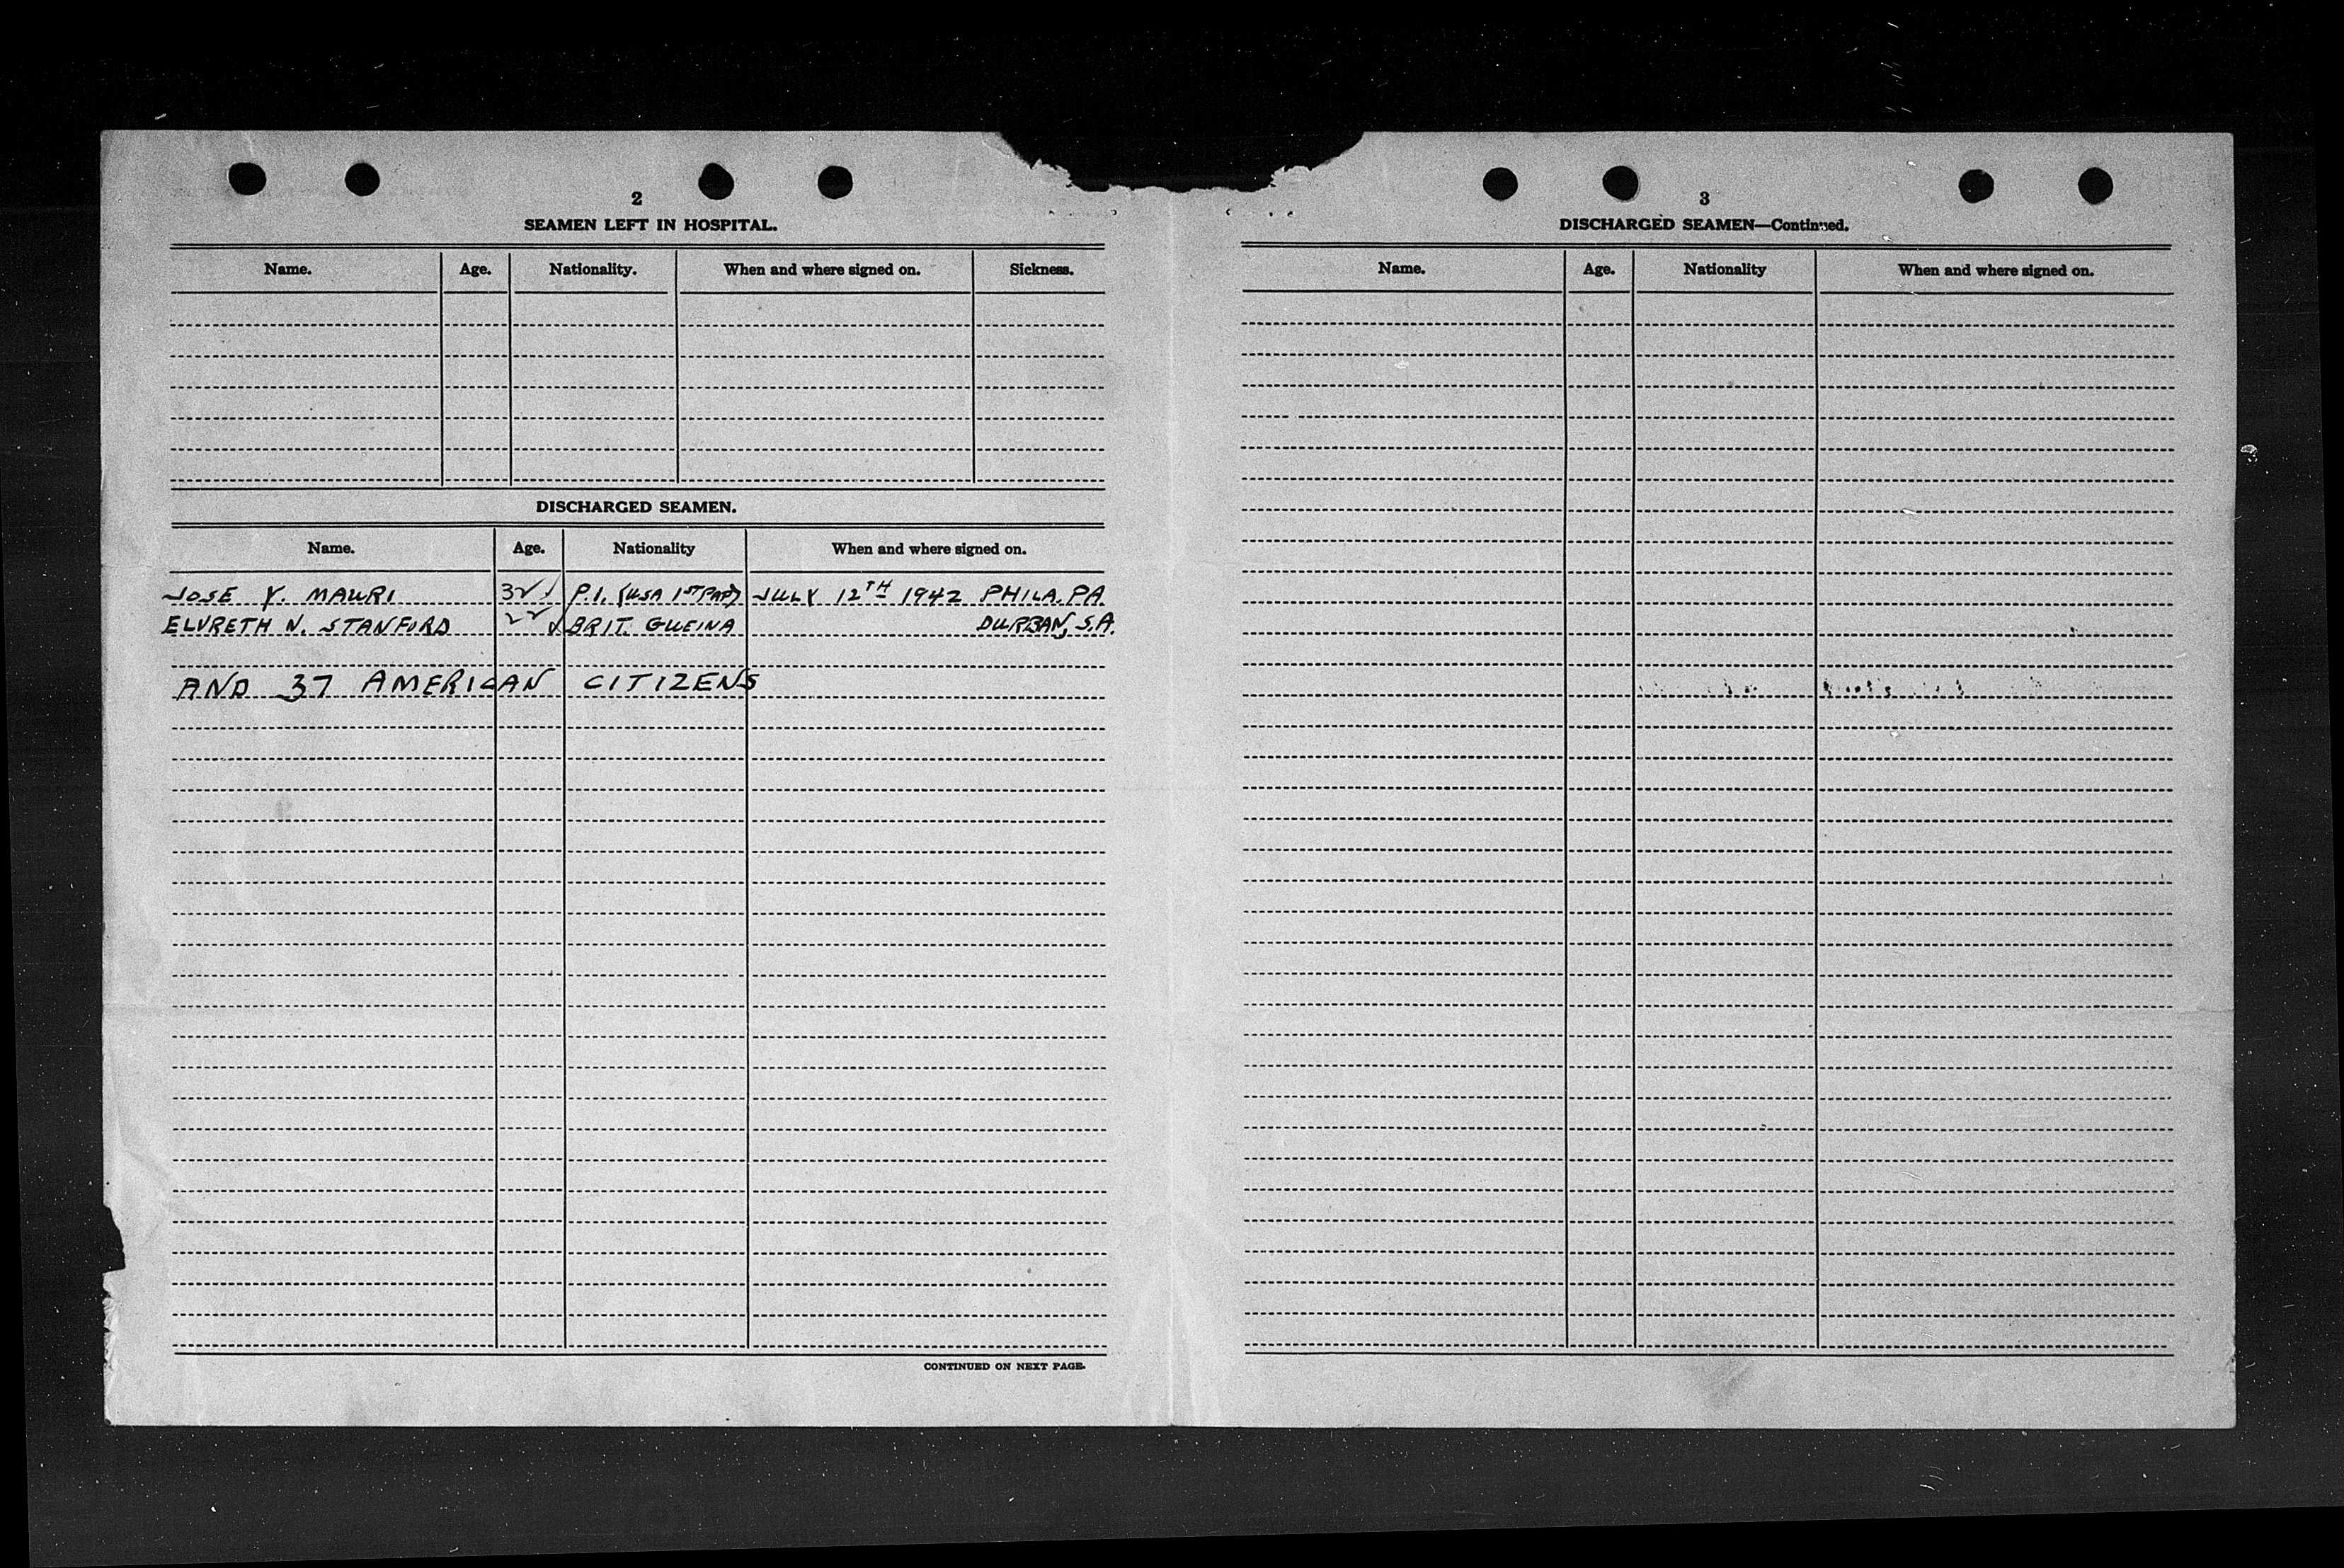 2
SEAMEN LEFT IN HOSPITAL.
Name. Age. Nationality. When and where signed on. Sickness.
DISCHARGED SEAMEN.
Name. Age. Nationality When and where signed on.
JOSE Y. MAURI 32 P.I. (USA 1ST PAP) JULY 12TH 1942 PHILA, PA.
ELVRETH N. STANFORD 22 BRIT. GUEINA DURBAN, S.A.
AND 37 AMERICAN CITIZENS
CONTINUED ON NEXT PAGE.
3
DISCHARGED SEAMEN—Continued.
Name. Age. Nationality When and where signed on.